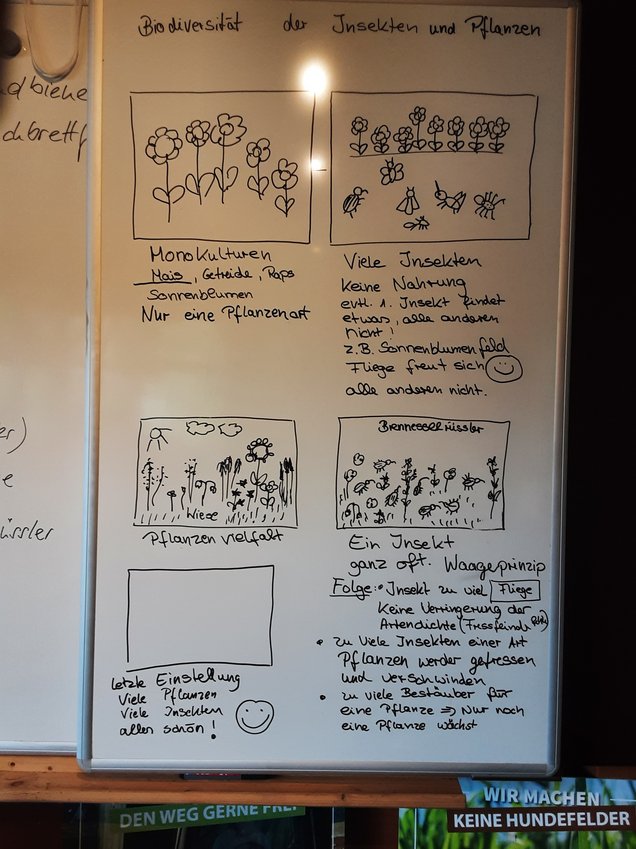 Biodiversität der Insekten und Pflanzen
Monokulturen
Mais, Getreide, Raps
Sonnenblumen
Nur eine Pflanzenart
Viele Insekten
Keine Nahrung
evtl. 1. Insekt findet
etwas, alle anderen
nicht!
z.B. Sonnenblumenfeld
Fliege freut sich
alle anderen nicht.
Wiese
Pflanzenvielfalt
Brennesselrüssler
Ein Insekt
ganz oft. Waageprinzip
Folge: • Insekt zu viel Fliege
Keine Verringerung der
Artendichte (Fressfeinde
• zu viele Insekten einer Art
Pflanzen werden gefressen
und verschwinden
• zu viele Bestäuber für
eine Pflanze => Nur noch
eine Pflanze wächst
letzte Einstellung
Viele Pflanzen
Viele Insekten
alles schön!
chbrett
er)
e
üssler
DEN WEG GERNE FREI
WIR MACHEN
KEINE HUNDEFELDER